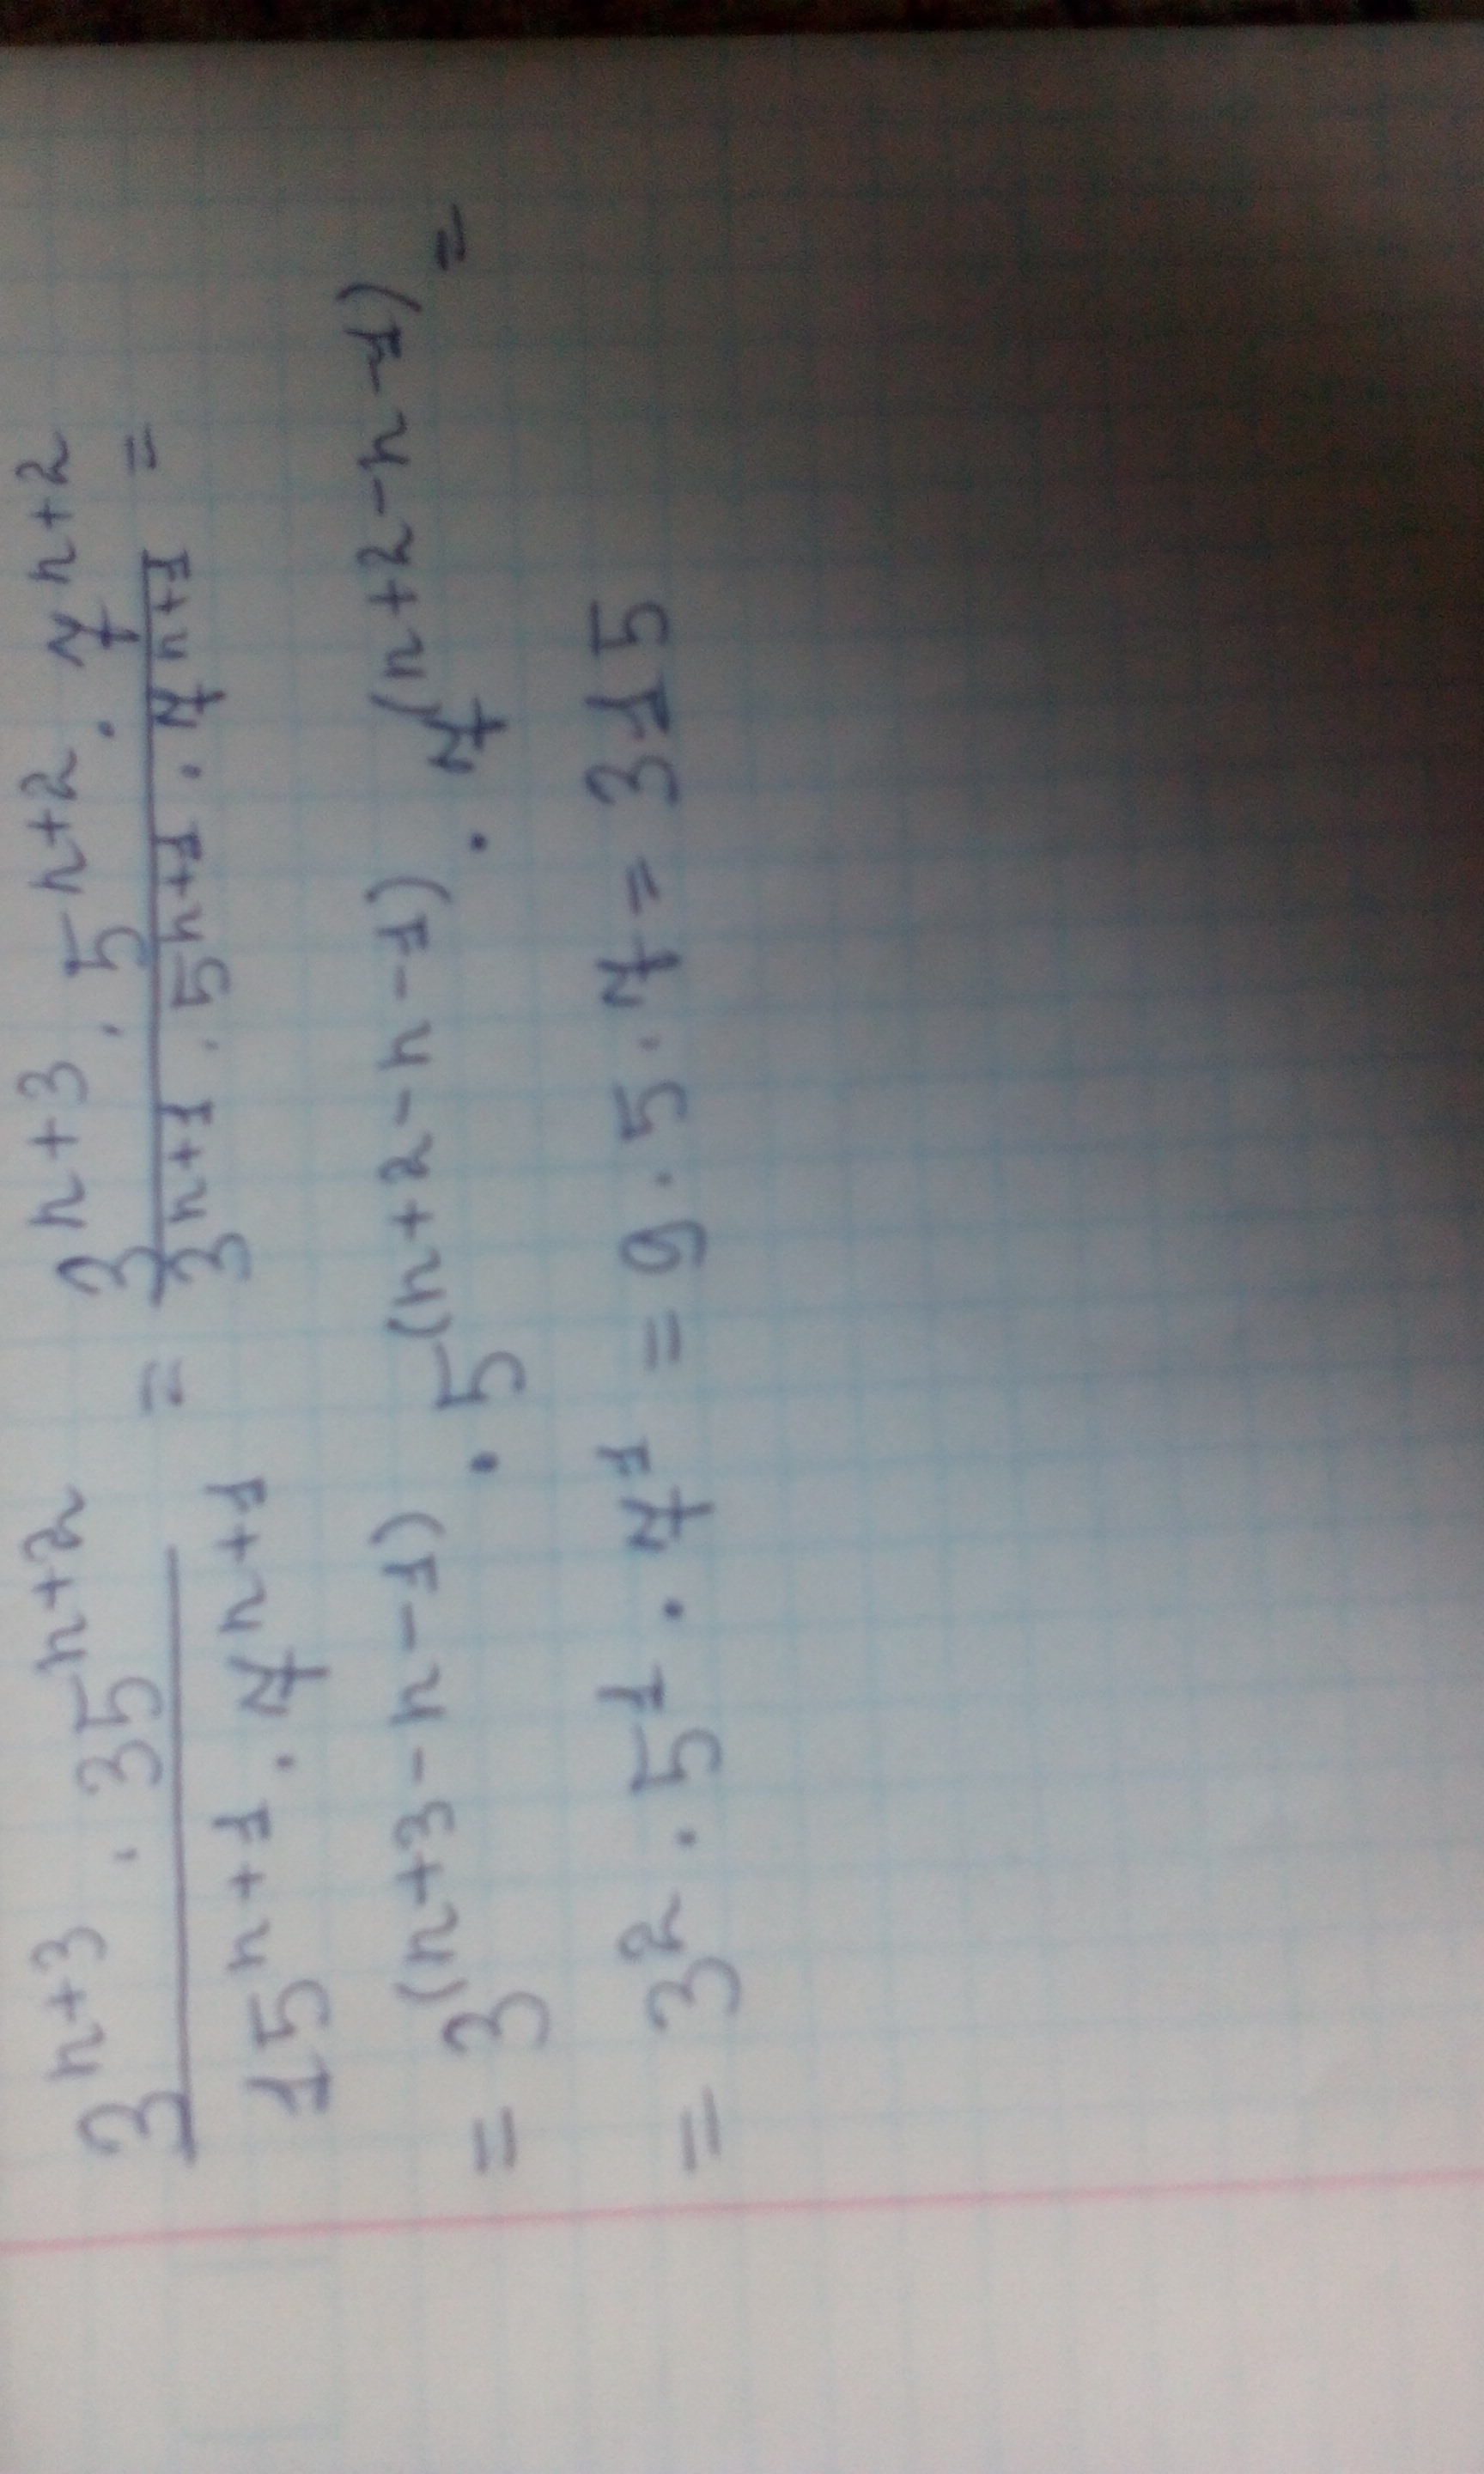 3^(n+3) · 35^(n+2) / 15^(n+1) · 7^(n+1) = 3^(n+3) · 5^(n+2) · 7^(n+2) / 3^(n+1) · 5^(n+1) · 7^(n+1) =
= 3^(n+3-n-1) · 5^(n+2-n-1) · 7^(n+2-n-1) =
= 3^2 · 5^1 · 7^1 = 9 · 5 · 7 = 315